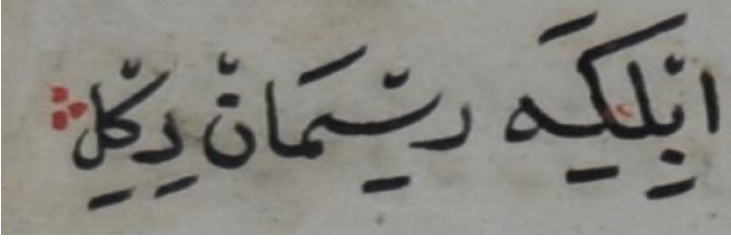 ابْلِكَه رِسْمَانْ دِكِلْ